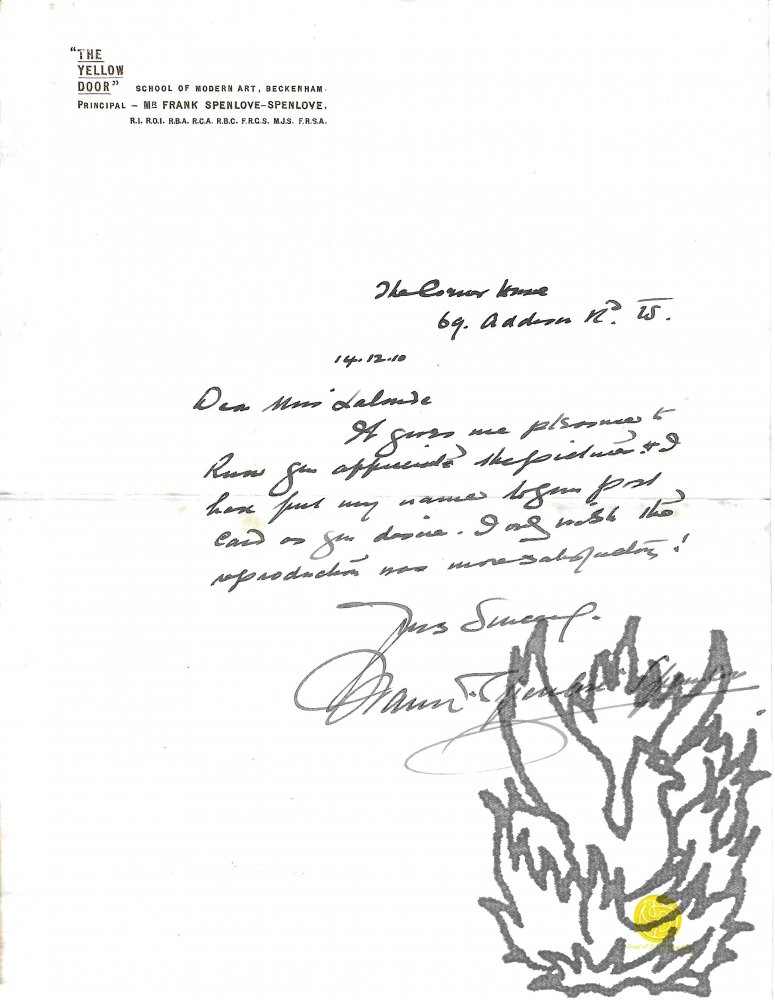 "THE
YELLOW
DOOR" SCHOOL OF MODERN ART, BECKENHAM.
PRINCIPAL – MR FRANK SPENLOVE-SPENLOVE,
R.I. R.O.I. R.B.A. R.C.A. R.B.C. F.R.G.S. M.J.S. F.R.S.A.
The Corner House
69. Addison Rd. W.
14.12.10
Dear Miss Lalande
It gives me pleasure to
know you appreciate the picture & I
have put my name to your post
card as you desire. I only wish the
reproduction was more satisfactory!
Yours Sincerely.
Frank Spenlove-Spenlove